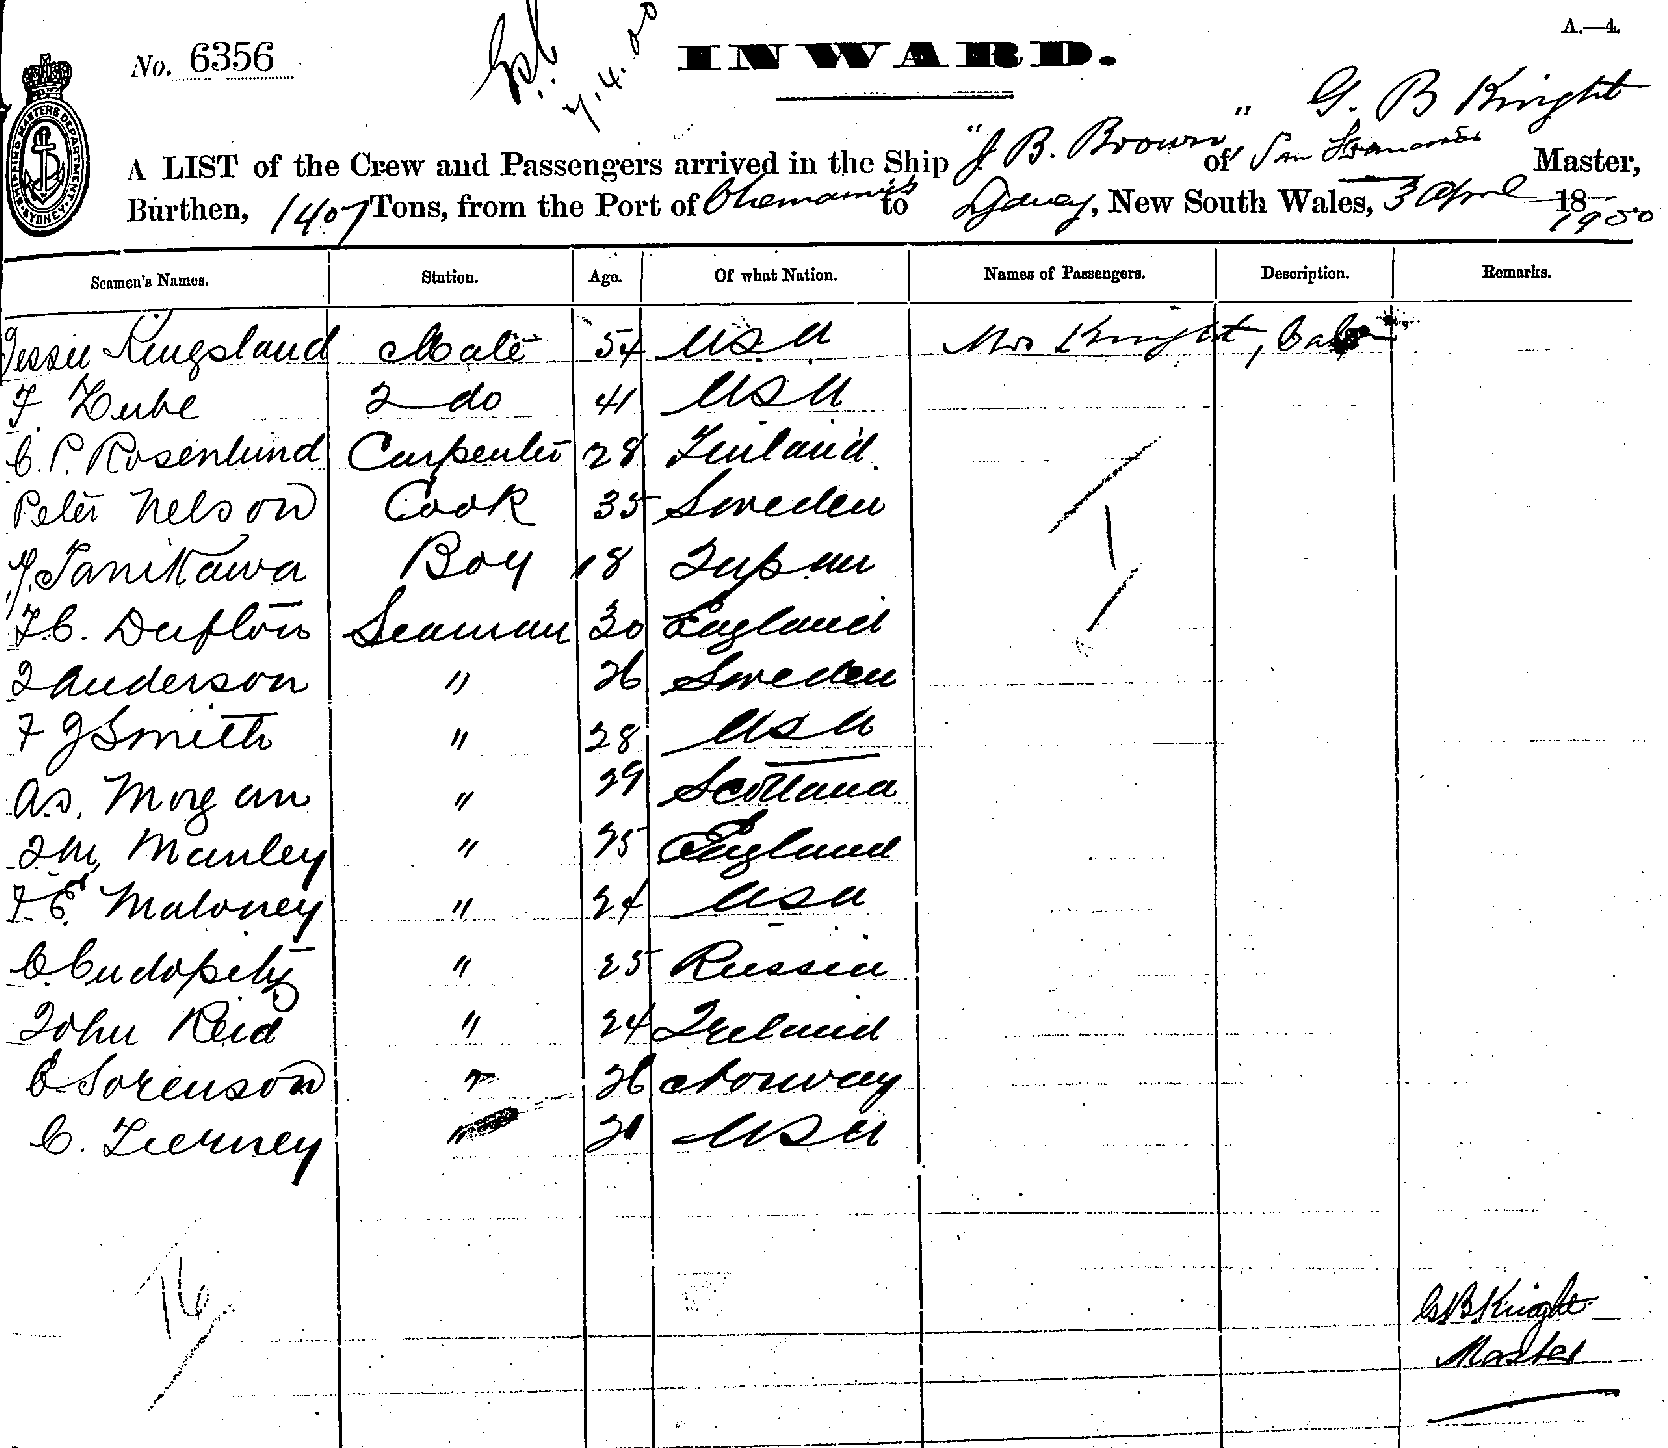 A.—4.
No. 6356
7.4.00
INWARD.
G. B Knight
A LIST of the Crew and Passengers arrived in the Ship "J B. Brown" of San Francisco Master,
Burthen, 1407 Tons, from the Port of Chemainus to Sydney, New South Wales, 3 April 18 1900
SHIPPING MASTERS DEPARTMENT SYDNEY
Seamen's Names. Station. Age. Of what Nation. Names of Passengers. Description. Remarks.
Jessie Kingsland Mate 54 USA Mrs Knight, Cabin
F. 2 do 41 USA
C. P. Rosenlund Carpenter 28 Finland.
Peter Nelson Cook 35 Sweden
J. Tanikawa Boy 18 Japan
F.C. Dufton Seaman 30 England
J Anderson " 26 Sweden
F J Smith " 28 USA
As. Morgan " 29 Scotland
J M, Manley " 25 England
F. E Maloney " 24 USA
C. " 25 Russia
John Reid " 24 Ireland
C Sorenson " 26 Norway
C. Tierney " 21 USA
16
G B Knight
Master